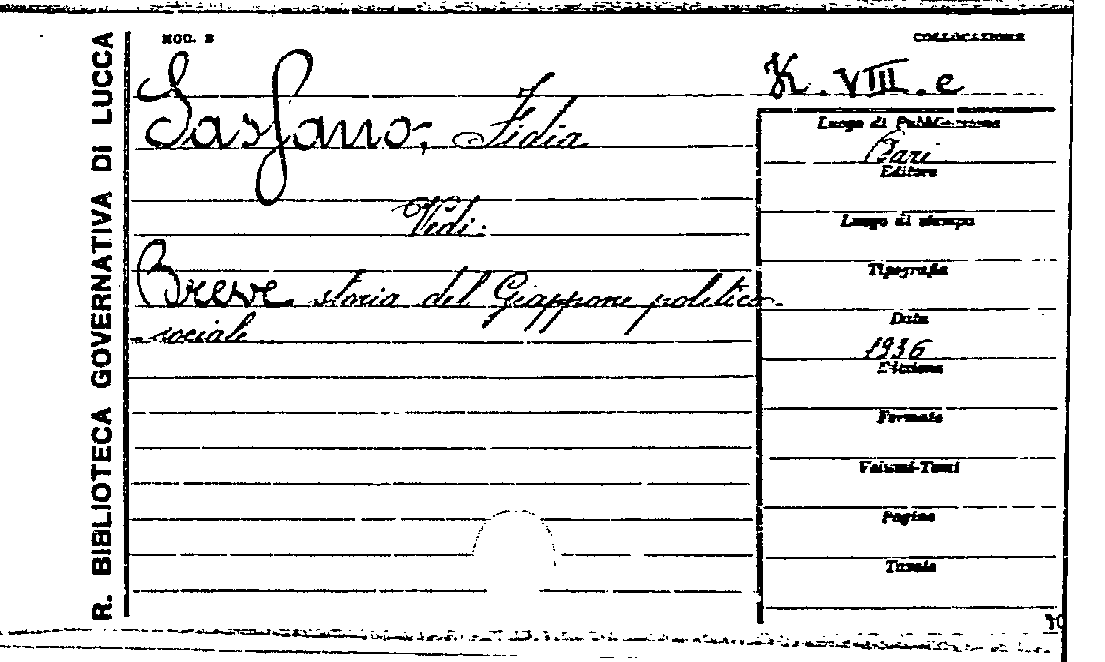 R. BIBLIOTECA GOVERNATIVA DI LUCCA
MOD. B
Sassano, Fidia
Vedi:
Breve storia del Giappone politico
sociale
COLLOCAZIONE
K. VIII. e
Luogo di Pubblicazione
Bari
Editore
Luogo di stampa
Tipografia
Data
1936
Edizione
Formato
Volumi-Tomi
Pagine
Tavole